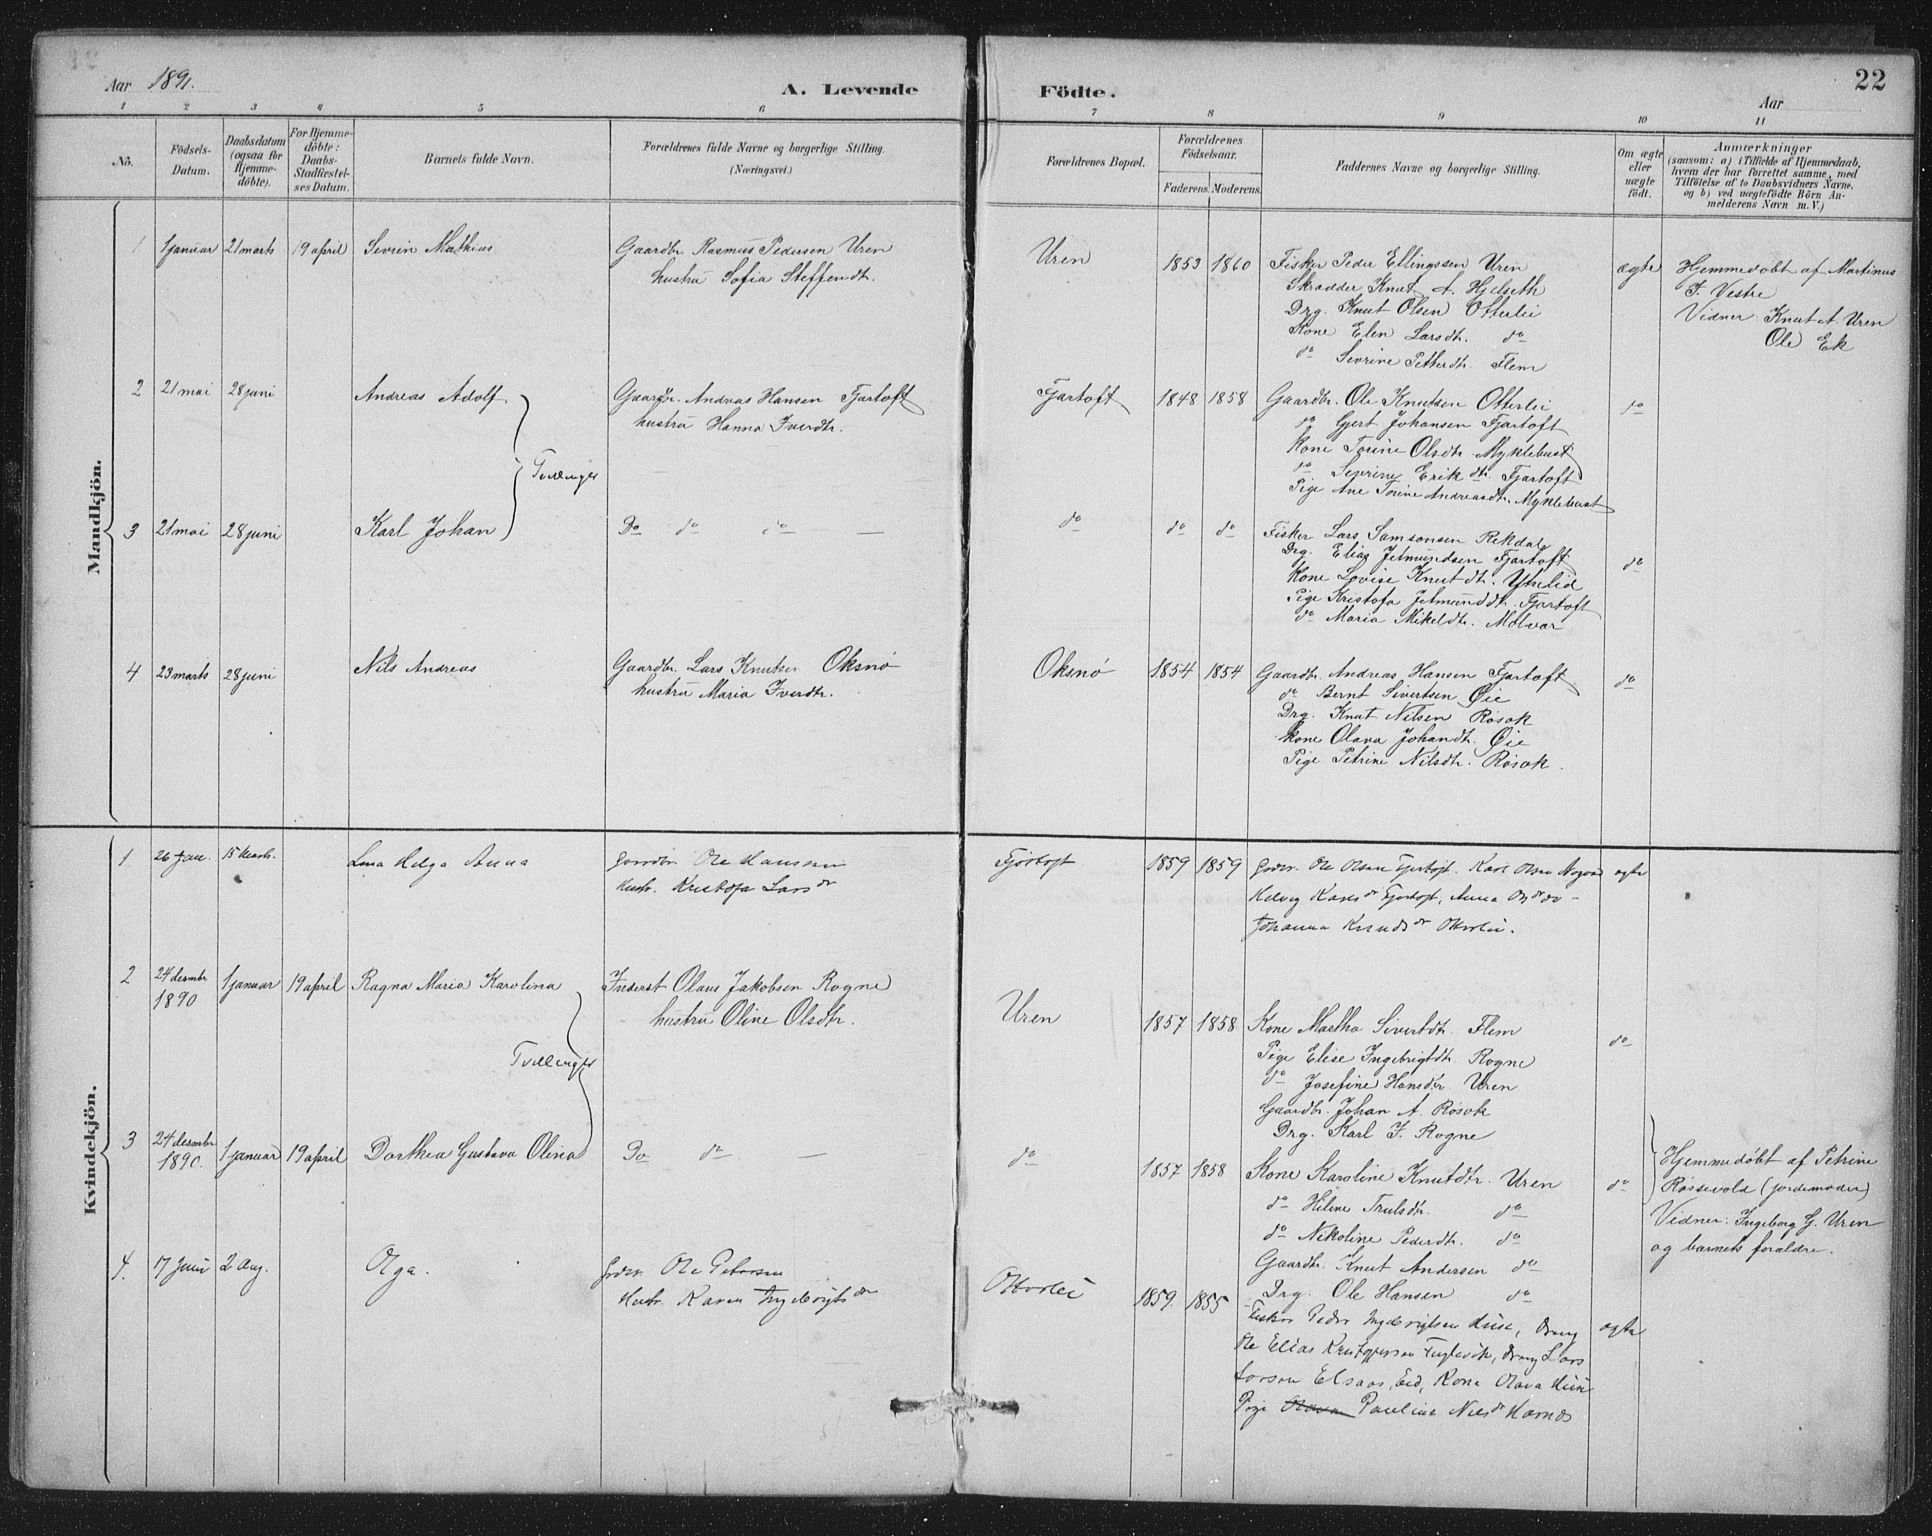 Aar 1891.
A. Levende Födte.
22
Aar
1 2 3 4 5 6 7 8 9 10 11
No.
Födsels-Datum.
Daabsdatum (ogsaa for Hjemme-döbte).
For Hjemme-döbte: Daabs-Stadfæstel-ses Datum.
Barnets fulde Navn.
Forældrenes fulde Navne og borgerlige Stilling.
(Næringsvei.)
Forældrenes Bopæl.
Forældrenes Födselsaar.
Faderens. Moderens.
Faddernes Navne og borgerlige Stilling.
Om ægte eller uægte födt.
Anmærkninger
(saasom: a) i Tilfælde af Hjemmedaab,
hvem der har forrettet samme, med
Tilföielse af to Daabsvidners Navne.
og b) ved uægtefödte Börn An-
melderens Navn m. V.)
Mandkjön.
1 1 januar 21 marts 19 april Sevrin Mathias
Gaardbr Rasmus Pedersen Uren
hustru Sofia Steffendt.
Uren 1853 1860
Fisker Peder Ellingssen Uren
Skrædder Knut A. Hjelseth
Drg. Knut Olsen Otterlei
Kone Elen Larsdt. do
do Sevrine Petterdt. Flem
ægte
Hjemmedøbt af Martinus
J. Vestre
Vidner Knut A. Uren
Ole Ek
2 21 mai 28 juni Andreas Adolf
Tvillinger
Gaardbr. Andreas Hansen Fjærtoft
hustru Hanna Iverdtr.
Fjærtoft 1848 1858
Gaardbr. Ole Knutsen Otterlei
do Gjert Johansen Fjærtoft
Kone Torine Olsdtr. Myklebust
do Severine Erikdtr. Fjærtoft
Pige Ane Torine Andreasdt. Myklebust
do
3 21 mai 28 juni Karl Johan
Do do do —
do do do
Fisker Lars Samsonsen Rekdal
Drg. Elias Jetmundsen Fjærtoft
Kone Lovise Knutdt. Ytrelid
Pige Kristofa Jetmunddt. Fjærtoft
do Maria Mikeldtr. Molvær
do
4 23 marts 28 juni Nils Andreas
Gaardbr. Lars Knutsen Oksnø
hustru Maria Iverdtr.
Oksnø 1854 1854
Gaardbr. Andreas Hansen Fjærtoft
do Bernt Sivertsen Øie
Drg. Knut Nilsen Røsok
Kone Olava Johandt. Øie
Pige Petrine Nilsdtr. Røsok.
do
Kvindekjön.
1 26 Jan. 15 Marts. Lina Helga Anna
Gaardbr. Ole Hanssen
Hustr. Kristofa Larsdr
Fjørtoft 1859 1859
Ole Olsen Fjørtoft, Karl Olsen
Helvig Karlsdr Fjørtoft, Anna
Johanna Knudsdr Otterlei.
ægte
2 24 desmbr 1890 1 januar 19 april Ragna Maria Karolina
Tvillinger
Inderst Olaus Jakobsen Rogne
hustru Oline Olsdtr.
Uren 1857 1858
Kone Martha Sivertdt. Flem
Pige Elise Ingebrigtdt. Rogne
do Josefine Hansdtr. Uren
Gaardbr. Johan A. Røsok
Drg. Karl J. Rogne
do
3 24 desmbr 1890. 1 januar 19 april Dorthea Gustava Olina
Do do —
do 1857 1858
Kone Karoline Knutdtr. Uren
do Hiline Trulsdtr. do
do Nikoline Pederdtr. do
Gaardbr. Knut Andersen do
Drg. Ole Hansen do
do
Hjemmedøbt af Petrine
Røssevold (jordemoder)
Vidner: Ingeborg G. Uren
og barnets forældre.
4. 17 Juni 2 Aug. Olga.
Ole Petersen
Hustr. Karen Ingebrigtsdr
Otterlei 1859. 1855
Fisker Peder Ingebrigtsen Huse, Dreng
Ole Elias Kristoffersen Fuglevik, Dreng Lars
Larsen Elsaas, Eid, Kone Olava Huse
Pige Olava Pauline Nilsdr Harnes
ægte